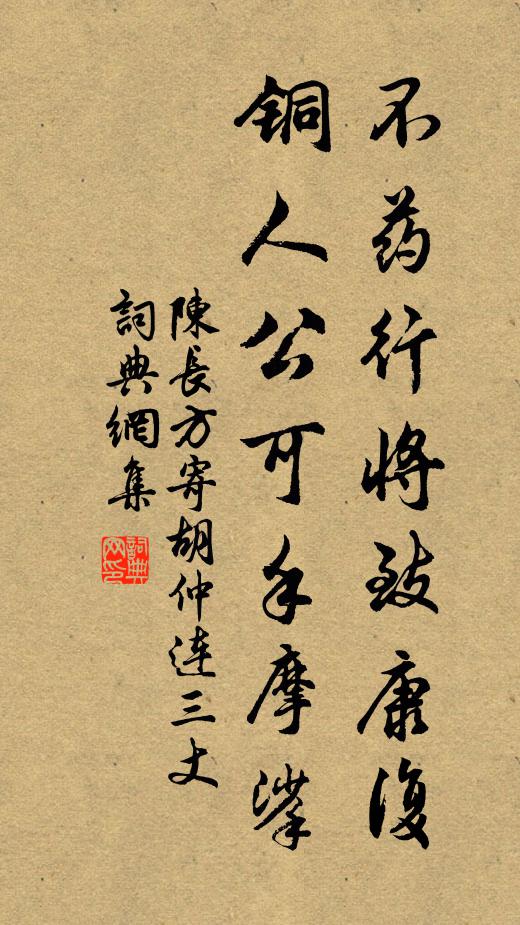 不药行将致康復
铜人公可手摩挲
陳長方寄胡仲達三丈
詞典網集
詞典网印